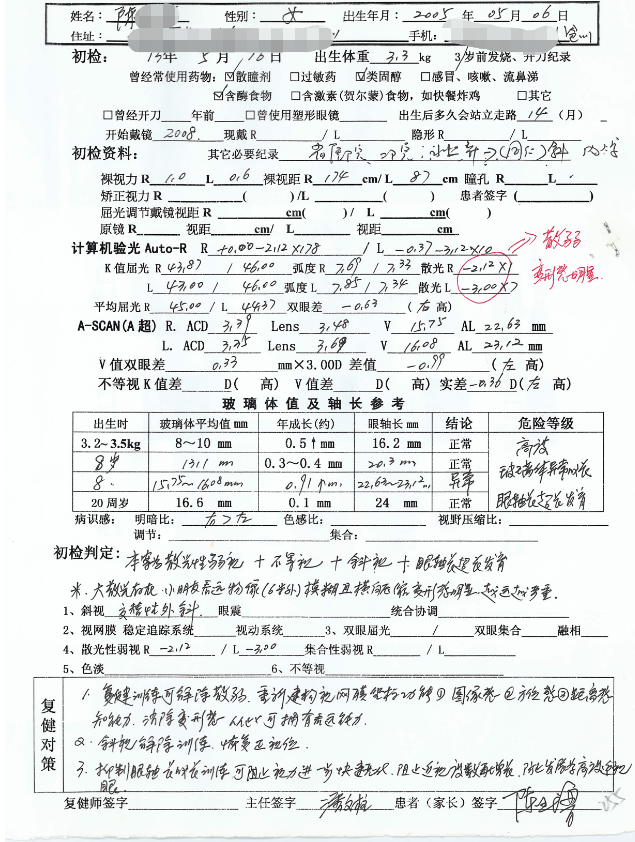 姓名：陈 性别：女 出生年月：2005年05月06日
住址： 手机：
初检：13年5月16日 出生体重3.3kg 3岁前发烧、开刀纪录
曾经常使用药物：☑散瞳剂 □过敏药 ☑类固醇 □感冒、咳嗽、流鼻涕
☑含酶食物 □含激素(贺尔蒙)食物，如快餐炸鸡 □其它
□曾经开刀 年前 □曾使用塑形眼镜 出生后多久会站立走路14（月）
开始戴镜2008. 现戴R / L 隐形R / L
初检资料： 其它必要纪录
裸视力R 1.0 L 0.6 裸视距R 174 cm/ L 87 cm 瞳孔R L
矫正视力R ( ) /L ( ) 患者签字( )
屈光调节戴镜视距R cm( )/ L cm( )
原镜R 视距 cm/ L 视距 cm
计算机验光Auto-R R +0.00-2.12×178 / L -0.37-3.12×10 ⇒散弱
K值屈光R 43.87 / 46.00 弧度R 7.69 / 7.33 散光R -2.12×1 变形感明显
L 43.00 / 46.00 弧度L 7.85 / 7.34 散光L -3.00×7
平均屈光R 45.00 / L 44.37 双眼差 -0.63 (右高)
A-SCAN(A超) R. ACD 3.39 Lens 3.48 V 15.75 AL 22.63 mm
L. ACD 3.35 Lens 3.69 V 16.08 AL 23.12 mm
V值双眼差 0.33 mm×3.00D 差值 -0.99 (左高)
不等视K值差 D( 高) V值差 D( 高) 实差-0.36 D(左高)
玻璃体值及轴长参考
出生时 玻璃体平均值mm 年成长(约) 眼轴长mm 结论 危险等级
3.2~3.5kg 8~10 mm 0.5↑mm 16.2 mm 正常 高度
8岁 13.11 mm 0.3~0.4 mm 20.3 mm 正常 玻璃体异常成长
8. 15.75~16.08mm 0.91↑m. 22.63~23.12m. 异常 眼轴长超长发育
20周岁 16.6 mm 0.1 mm 24 mm 正常
病识感： 明暗比：右＞左 色感比： 视野压缩比：
调节： 集合：
初检判定：本案为散光性弱视＋不等视＋斜视＋眼轴长超长发育
※.大散光存在，小朋友看远物像(6米外)模糊且横向 变形感明显.越远越严重.
1、斜视 交替性外斜. 眼震 统合协调
2、视网膜 稳定追踪系统 视动系统 3、双眼屈光 / 双眼集合 融相
4、散光性弱视R -2.12 / L -3.00 集合性弱视R / L
5、色淡 6、不等视
复健对策
1.复健训练可解除散弱.重新建构视网膜坐标功能①图像感②方位感③距离感
知能力.消除变形感 从此可拥有看远能力.
2.斜视解除训练.恢复正视位.
3.抑制眼轴长成长训练可阻止视力进一步快速恶化.阻止近视度数再增长.防止发展为高度近视
眼.
复健师签字 主任签字 患者（家长）签字